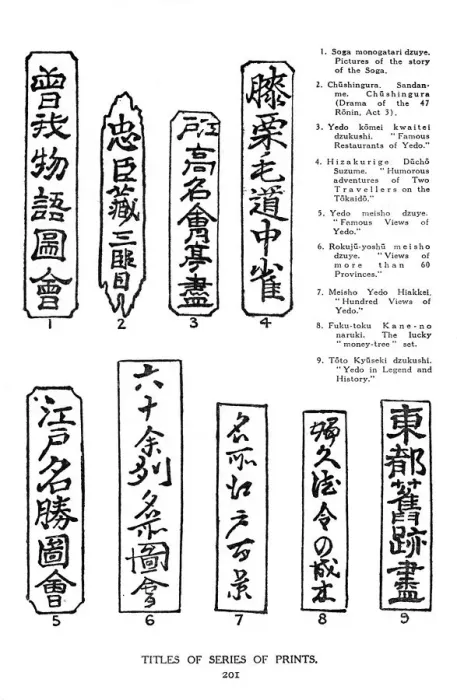 曽我物語圖會
1
忠臣藏三段目
2
江戸高名會亭盡
3
膝栗毛道中雀
4
1. Soga monogatari dzuye.
Pictures of the story
of the Soga.
2. Chūshingura. Sandan-
me. Chūshingura
(Drama of the 47
Rōnin, Act 3).
3. Yedo kōmei kwaitei
dzukushi. "Famous
Restaurants of Yedo."
4. Hizakurige Dūchō
Suzume. "Humorous
adventures of Two
Travellers on the
Tōkaidō."
5. Yedo meisho dzuye.
"Famous Views of
Yedo."
6. Rokujū-yoshū meisho
dzuye. "Views of
more than 60
Provinces."
7. Meisho Yedo Hiakkei.
"Hundred Views of
Yedo."
8. Fuku-toku Kane-no
naruki. The lucky
"money-tree" set.
9. Tōto Kyūseki dzukushi.
"Yedo in Legend and
History."
江戸名勝圖會
5
六十余州名所圖會
6
名所江戸百景
7
久徳金の成木
8
東都舊跡盡
9
TITLES OF SERIES OF PRINTS.
201